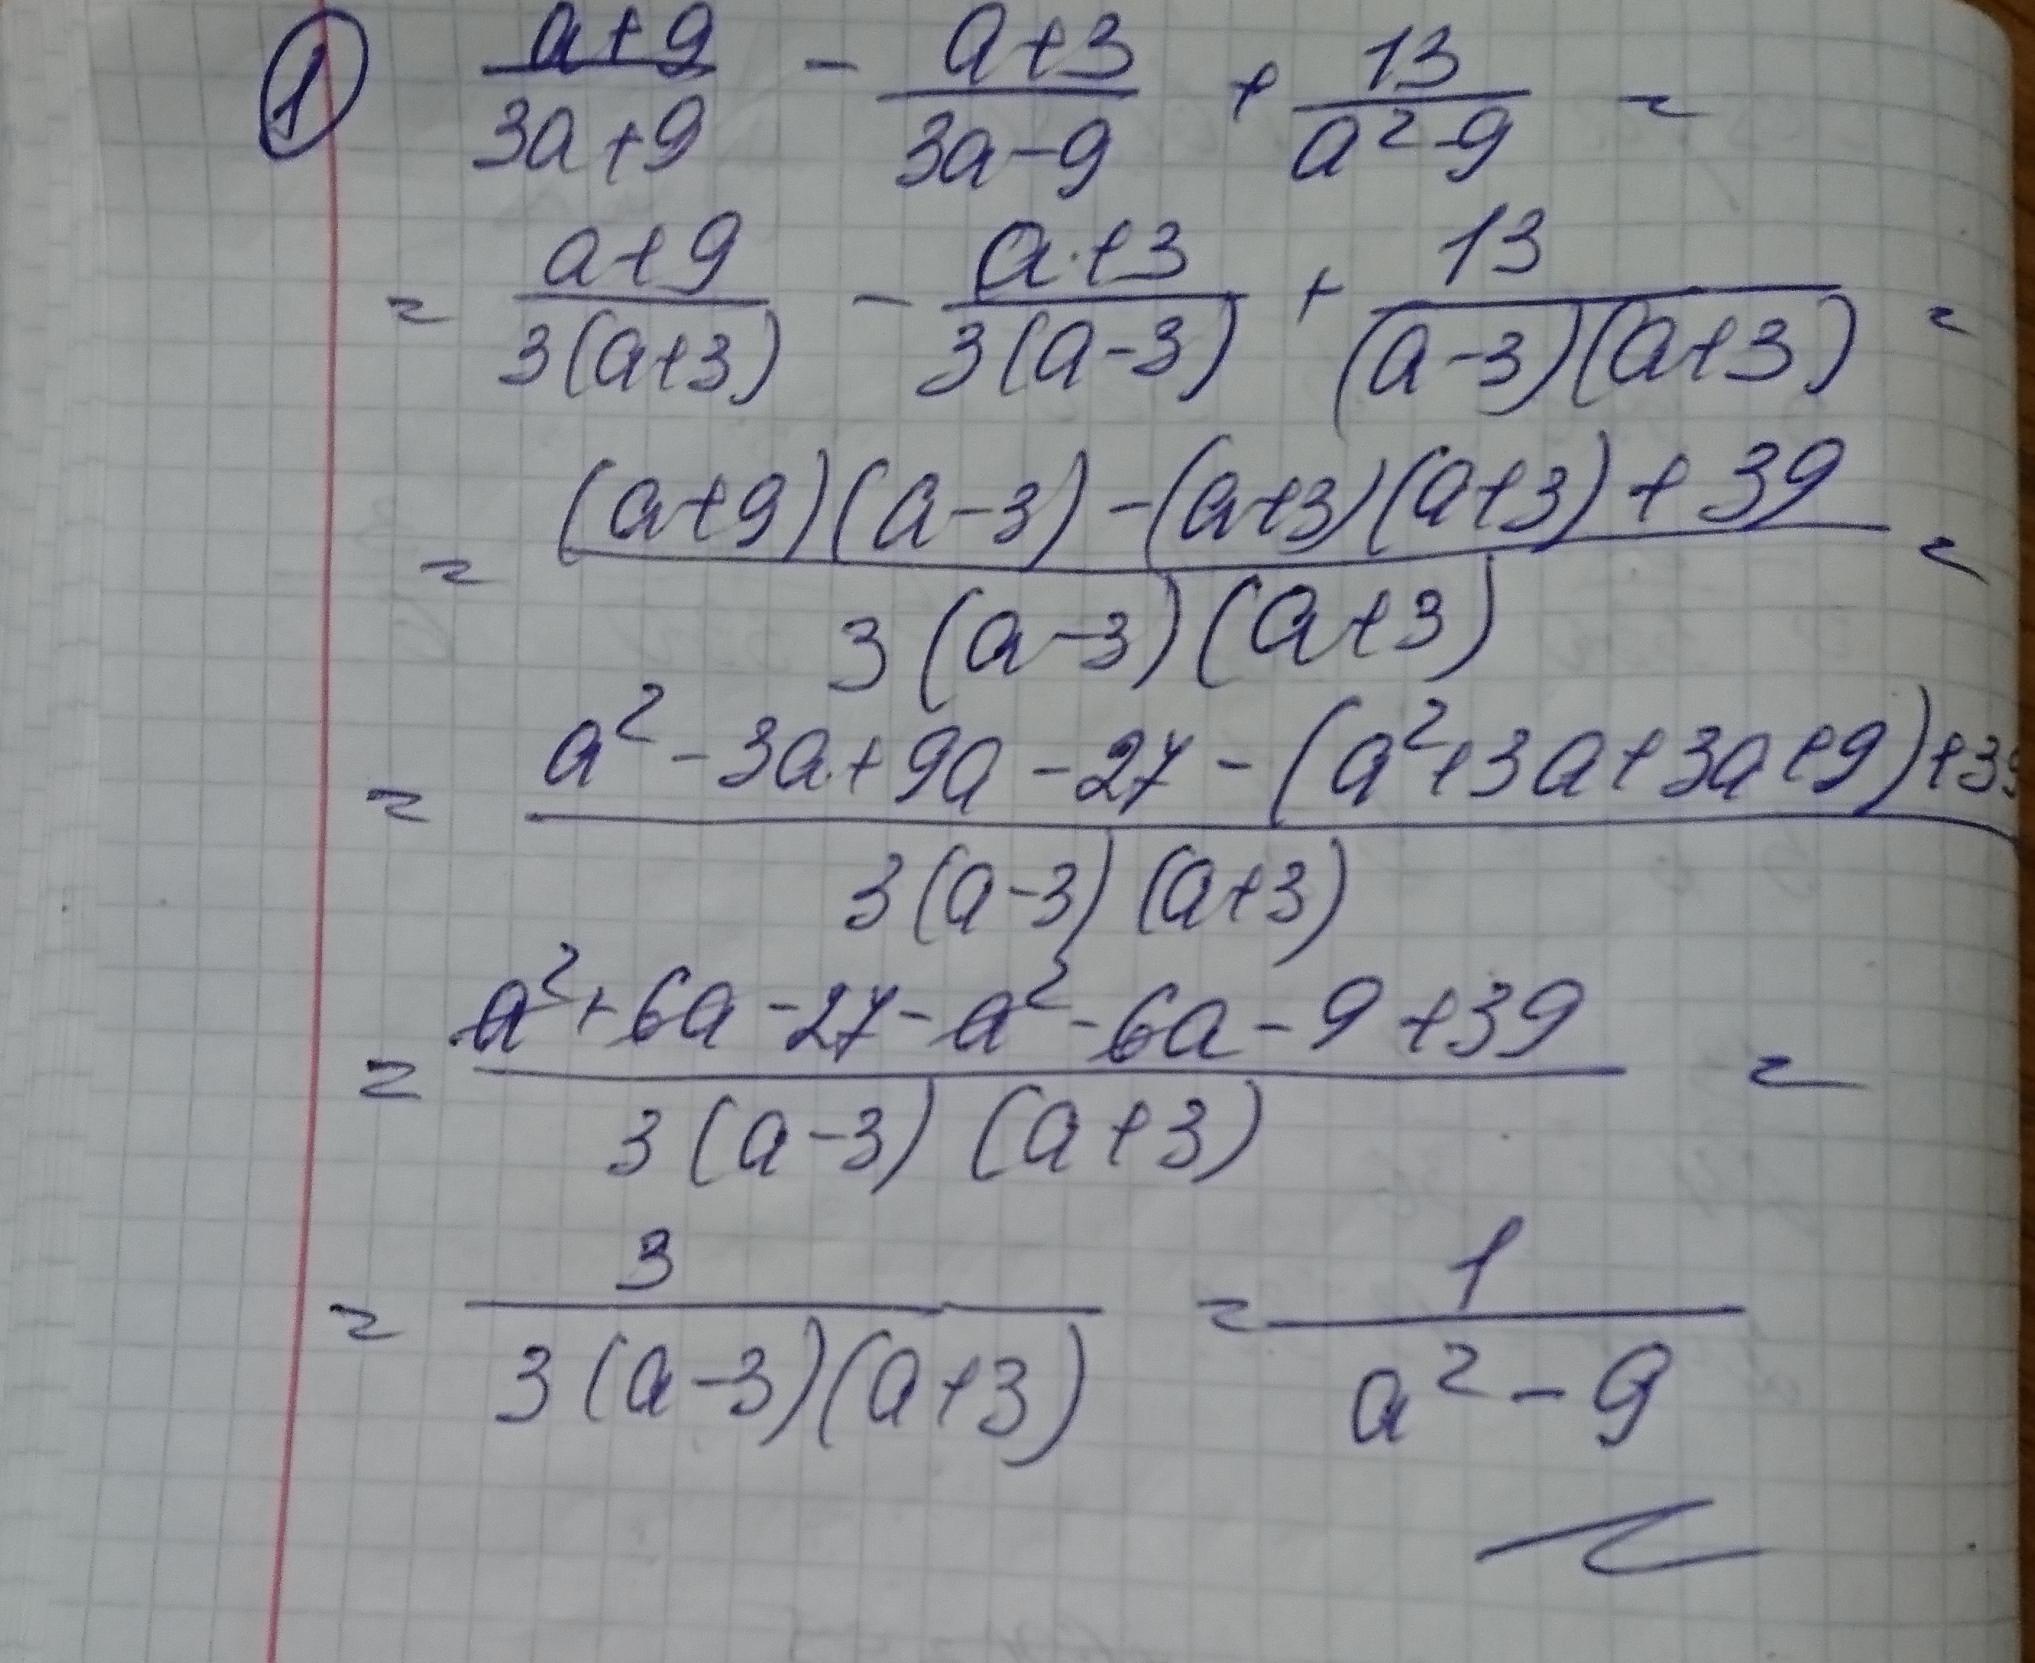 ① (a+9)/(3a+9) - (a+3)/(3a-9) + 13/(a²-9) =
= (a+9)/(3(a+3)) - (a+3)/(3(a-3)) + 13/((a-3)(a+3)) =
= ((a+9)(a-3)-(a+3)(a+3)+39)/(3(a-3)(a+3)) =
= (a²-3a+9a-27-(a²+3a+3a+9)+39)/(3(a-3)(a+3))
= (a²+6a-27-a²-6a-9+39)/(3(a-3)(a+3)) =
= 3/(3(a-3)(a+3)) = 1/(a²-9)